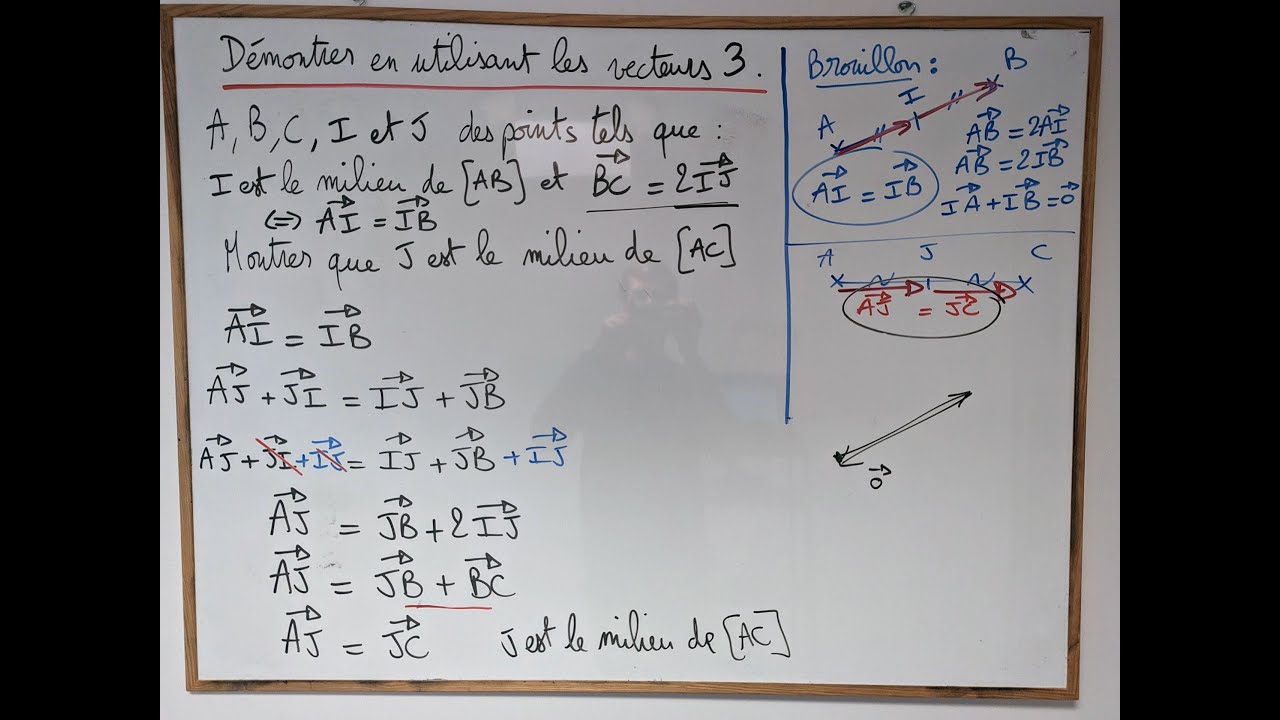 Démontrer en utilisant les vecteurs 3.
A, B, C, I et J des points tels que :
I est le milieu de [AB] et \overrightarrow{BC} = 2\overrightarrow{IJ}
⇔ \overrightarrow{AI} = \overrightarrow{IB}
Montrer que J est le milieu de [AC]
\overrightarrow{AI} = \overrightarrow{IB}
\overrightarrow{AJ} + \overrightarrow{JI} = \overrightarrow{IJ} + \overrightarrow{JB}
\overrightarrow{AJ} + \overrightarrow{JI} + \overrightarrow{IJ} = \overrightarrow{IJ} + \overrightarrow{JB} + \overrightarrow{IJ}
\overrightarrow{AJ} = \overrightarrow{JB} + 2\overrightarrow{IJ}
\overrightarrow{AJ} = \overrightarrow{JB} + \overrightarrow{BC}
\overrightarrow{AJ} = \overrightarrow{JC} J est le milieu de [AC]
Brouillon :
A I B
\overrightarrow{AB} = 2\overrightarrow{AI}
\overrightarrow{AB} = 2\overrightarrow{IB}
\overrightarrow{AI} = \overrightarrow{IB}
\overrightarrow{IA} + \overrightarrow{IB} = \vec{0}
A J C
\overrightarrow{AJ} = \overrightarrow{JC}
\vec{0}